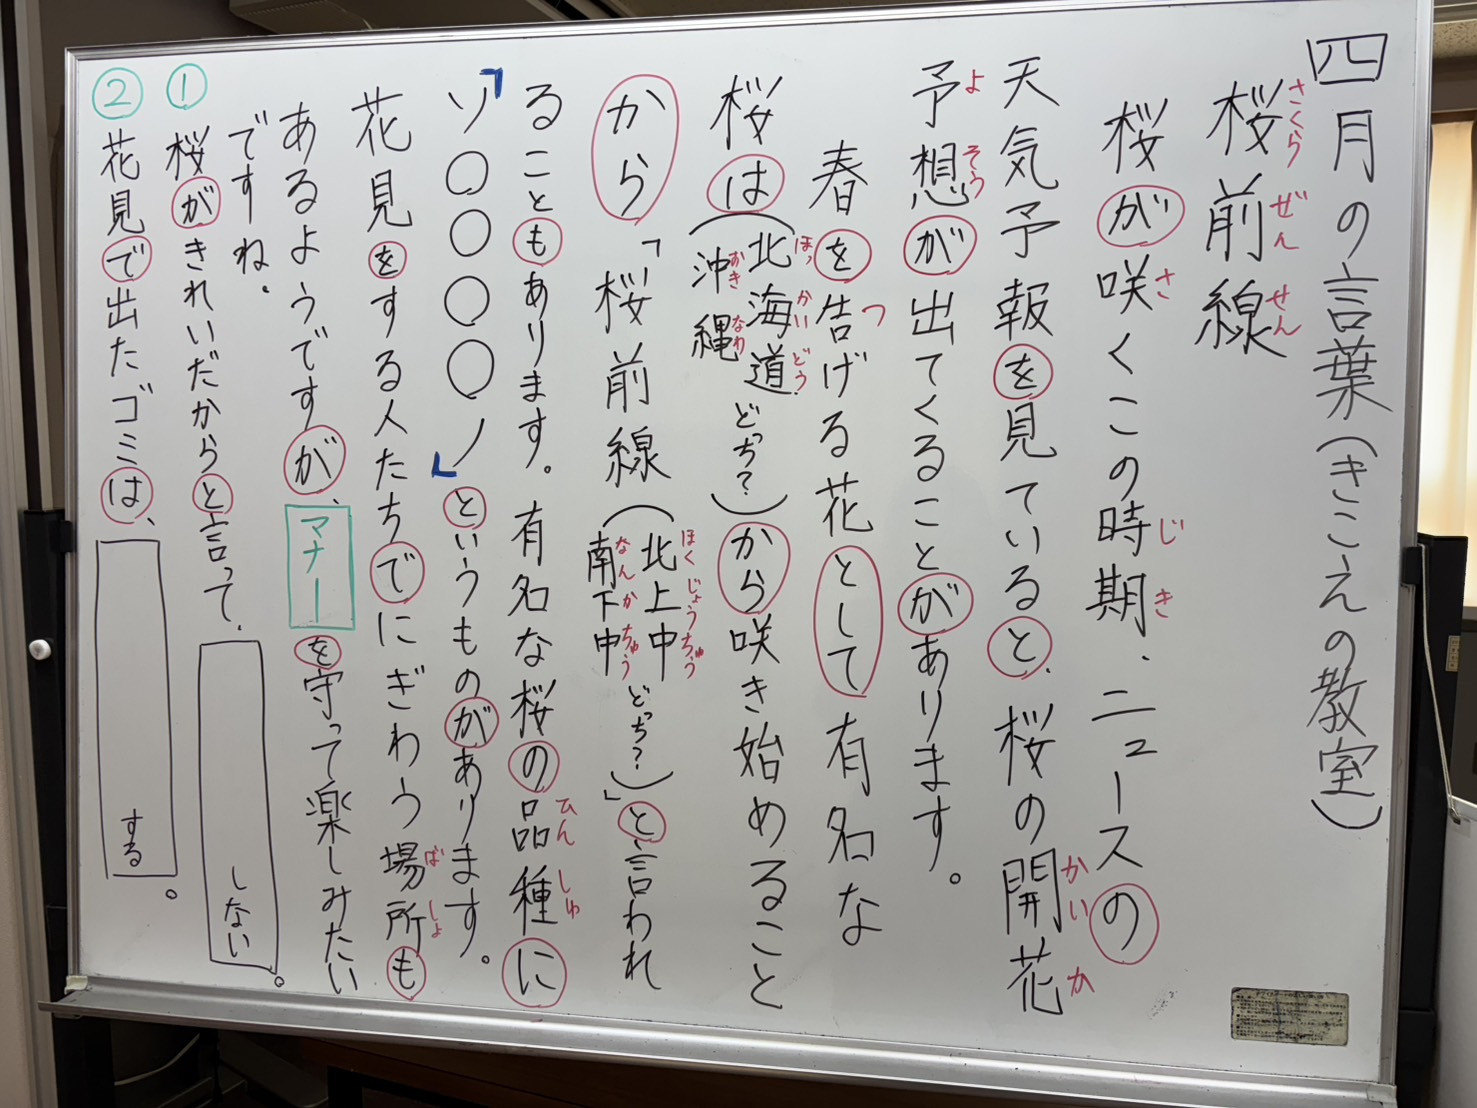 四月の言葉(きこえの教室)
桜前線
さくらぜんせん
桜が咲くこの時期、ニュースの
さ
じき
天気予報を見ていると、桜の開花
かいか
予想が出てくることがあります。
よそう
春を告げる花として有名な
つ
桜は(北海道 沖縄 どっち?)から咲き始めること
ほっかいどう
おきなわ
から「桜前線(北上中 南下中 どっち?)」と言われ
ほくじょうちゅう
なんかちゅう
ることもあります。有名な桜の品種に
ひんしゅ
「ソ〇〇〇〇ノ」というものがあります。
花見をする人たちでにぎわう場所も
ばしょ
あるようですが、マナーを守って楽しみたい
ですね。
① 桜がきれいだからと言って、 しない。
② 花見で出たゴミは、 する。